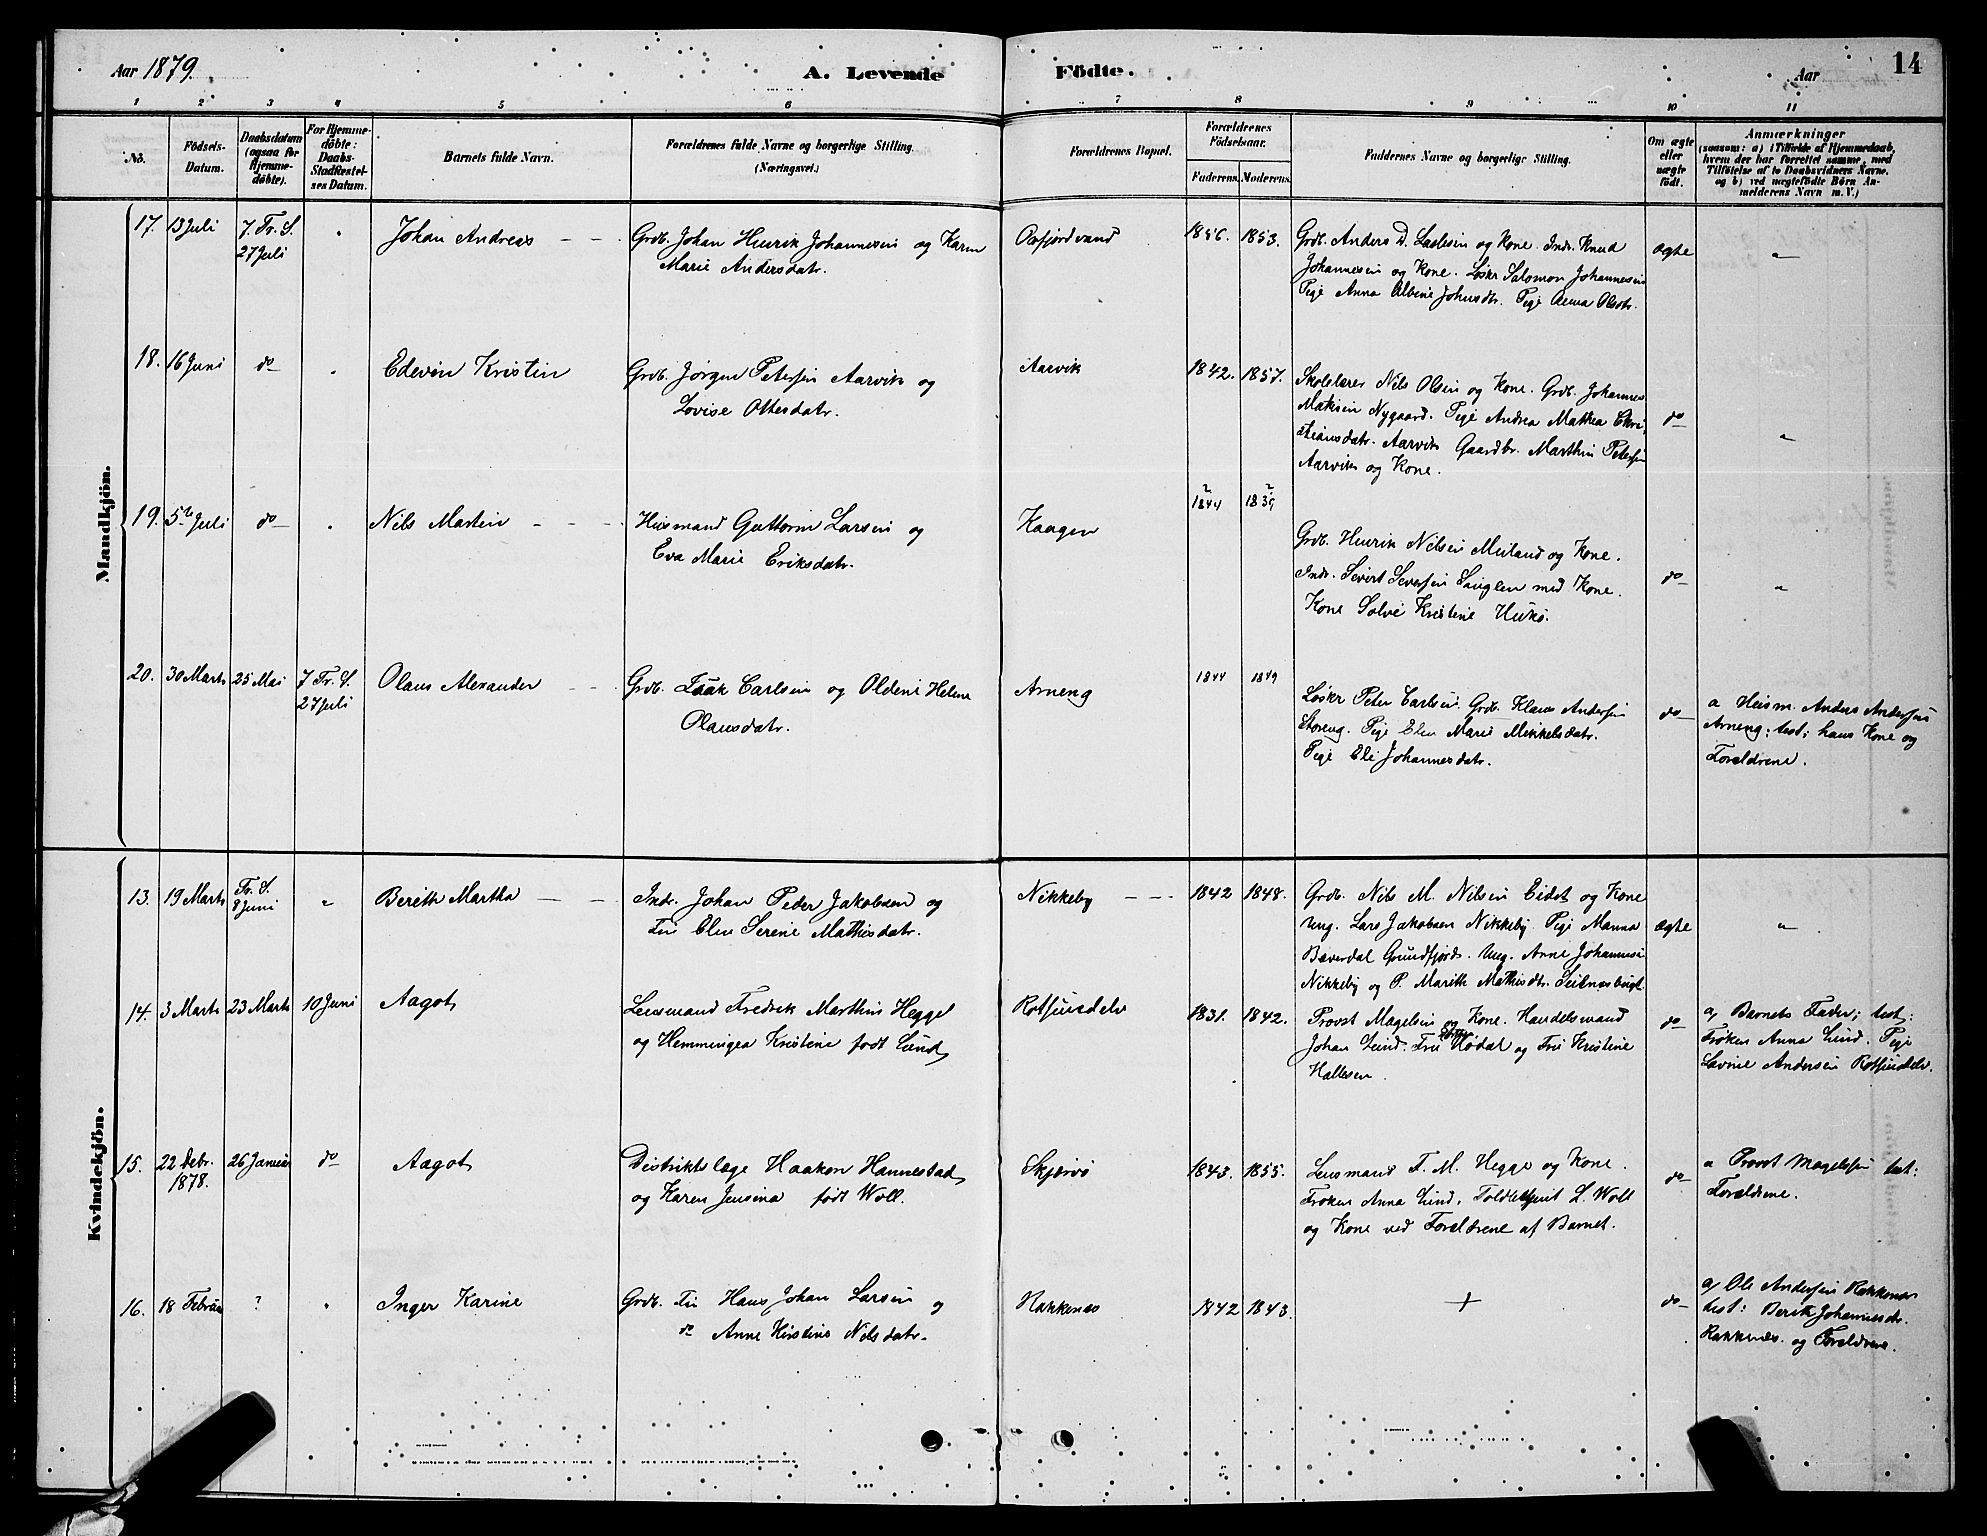 Aar 1879.
A. Levende Födte.
Aar
14
1 2 3 4 5 6 7 8 9 10 11
No.
Födsels-Datum.
Daabsdatum (ogsaa for Hjemme-döbte).
For Hjemme-döbte: Daabs-Stadfæstelses Datum.
Barnets fulde Navn.
Forældrenes fulde Navne og borgerlige Stilling. (Næringsvei.)
Forældrenes Bopæl.
Forældrenes Födselsaar.
Faderens. Moderens.
Faddernes Navne og borgerlige Stilling.
Om ægte eller uægte födt.
Anmærkninger
(saasom: a) i Tilfælde af Hjemmedaab, hvem der har forrettet samme, med Tilföielse af to Daabsvidners Navne. og b) ved uægtefödte Börn Anmelderens Navn m. V.)
Mandkjön.
17. 13 Juli 7. Tr. S. 27 Juli " Johan Andreas
Grdb. Johan Henrik Johannesen og Karen
Marie Andersdatr.
Oxfjordvand 1856. 1853.
Grdb. Anders D. Laslesen og Kone. Indr. Knud
Johannesen og Kone. Løskr Salomon Johannesen
Pige Anna Albine Johnsdtr. Pige Anna Olsdtr.
ægte "
18. 16 Juni do " Edevin Kristin
Grdb. Jørgen Petersen Aarvik og
Lovise Ottesdatr.
Aarvik 1842. 1857.
Skolelærer Nils Olsen og Kone. Grdb. Johannes
Maksen Nygaard. Pige Andrea Mathea Chri
stiansdatr. Aarvik Gaardbr. Marthin Petersen
Aarvik og Kone.
do "
19. 5te Juli do " Nils Martin
Husmand Guttorm Larsen og
Eva Marie Eriksdatr.
Kaagen 1844 ? 1839 ?
Grdb. Henrik Nilsen Meiland og Kone.
Indr. Severt Seversen Lauglen med Kone.
Kone Solvei Kristine Hukø.
do "
20. 30 Marts 25 Mai 7 Tr. S. 27 Juli Olaus Alexander
Grdb. Isak Carlsen og Oldeni Helene
Olausdatr.
Arneng 1844 1849
Løskr Peter Carlsen. Grdb. Klaus Andersen
Storeng. Pige Elen Marie Mikkelsdatr.
Pige Eli Johannesdatr.
do a Husm. Anders Andersen
Arneng; test; hans Kone og
Forældrene.
Kvindekjön.
13. 19 Marts Tr. S. 8 Juni " Bereth Martha
Indr. Johan Peder Jakobsen og
Fin Elen Serine Mathisdatr.
Nikkeby 1842 1848.
Grdb. Nils M. Nilsen Eidet og Kone
Ung. Lars Jakobsen Nikkeby. Pige Manna
Bæverdal Grundfjord. Ung. Arne Johannesen
Nikkeby og P. Mareth Mathisdtr. Leitnesbugt.
ægte "
14. 3 Marts 23 Marts 10 Juni Aagot
Lensmand Fredrik Marthin Hegge
og Hemmingea Kristine født Lund
Rotsundelv 1831. 1842.
Provst Magelsen og Kone. Handelsmand
Johan Lund. Fru Hødal og Fru Kristine
Hallesen.
do a) Barnets Fader; test:
Frøken Anna Lund. Pige
Lavine Andersen Rotsundelv.
15. 22 Debr. 1878. 26 Januar do Aagot
Distriktslæge Haakon Hannestad
og Karen Jensina født Woll.
Skjærvø 1843. 1855.
Lensmand F. M. Hegge og Kone.
Frøken Anna Lund. Toldbetjent L. Woll
og Kone ved Forældrene af Barnet.
do a Provst Magelsen test:
Forældrene.
16. 18 Februar ? " Inger Karine
Grdb. Fin Hans Johan Larsen og
do Anne Kirstine Nilsdatr.
Rakkenes 1842 1843.
+
do a) Ole Andersen Rakkenes
test: Berith Johannesdtr.
Rakkenæs. og Forældrene.